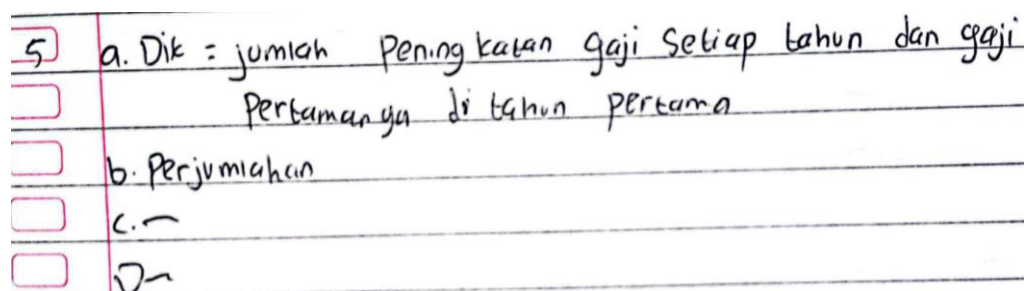 5 a. Dik = jumlah peningkatan gaji setiap tahun dan gaji
pertamanya di tahun pertama
b. Perjumlahan
c. -
D -